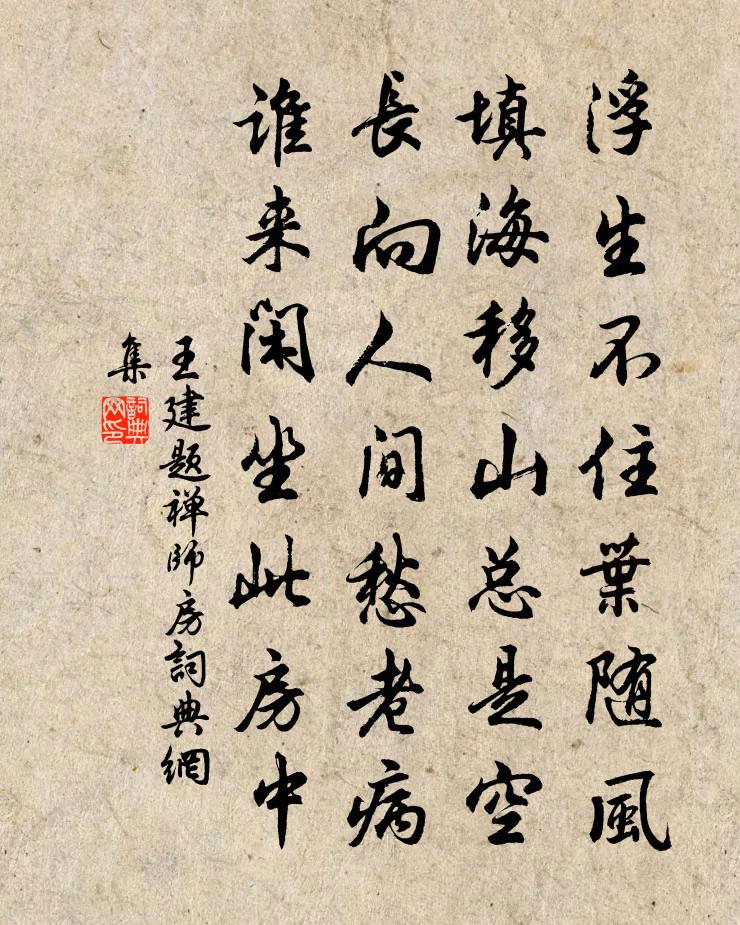 浮生不住葉随風
填海移山总是空
長向人間愁老病
谁来閑坐此房中
王建题禅師房詞典網
集
詞典
网印